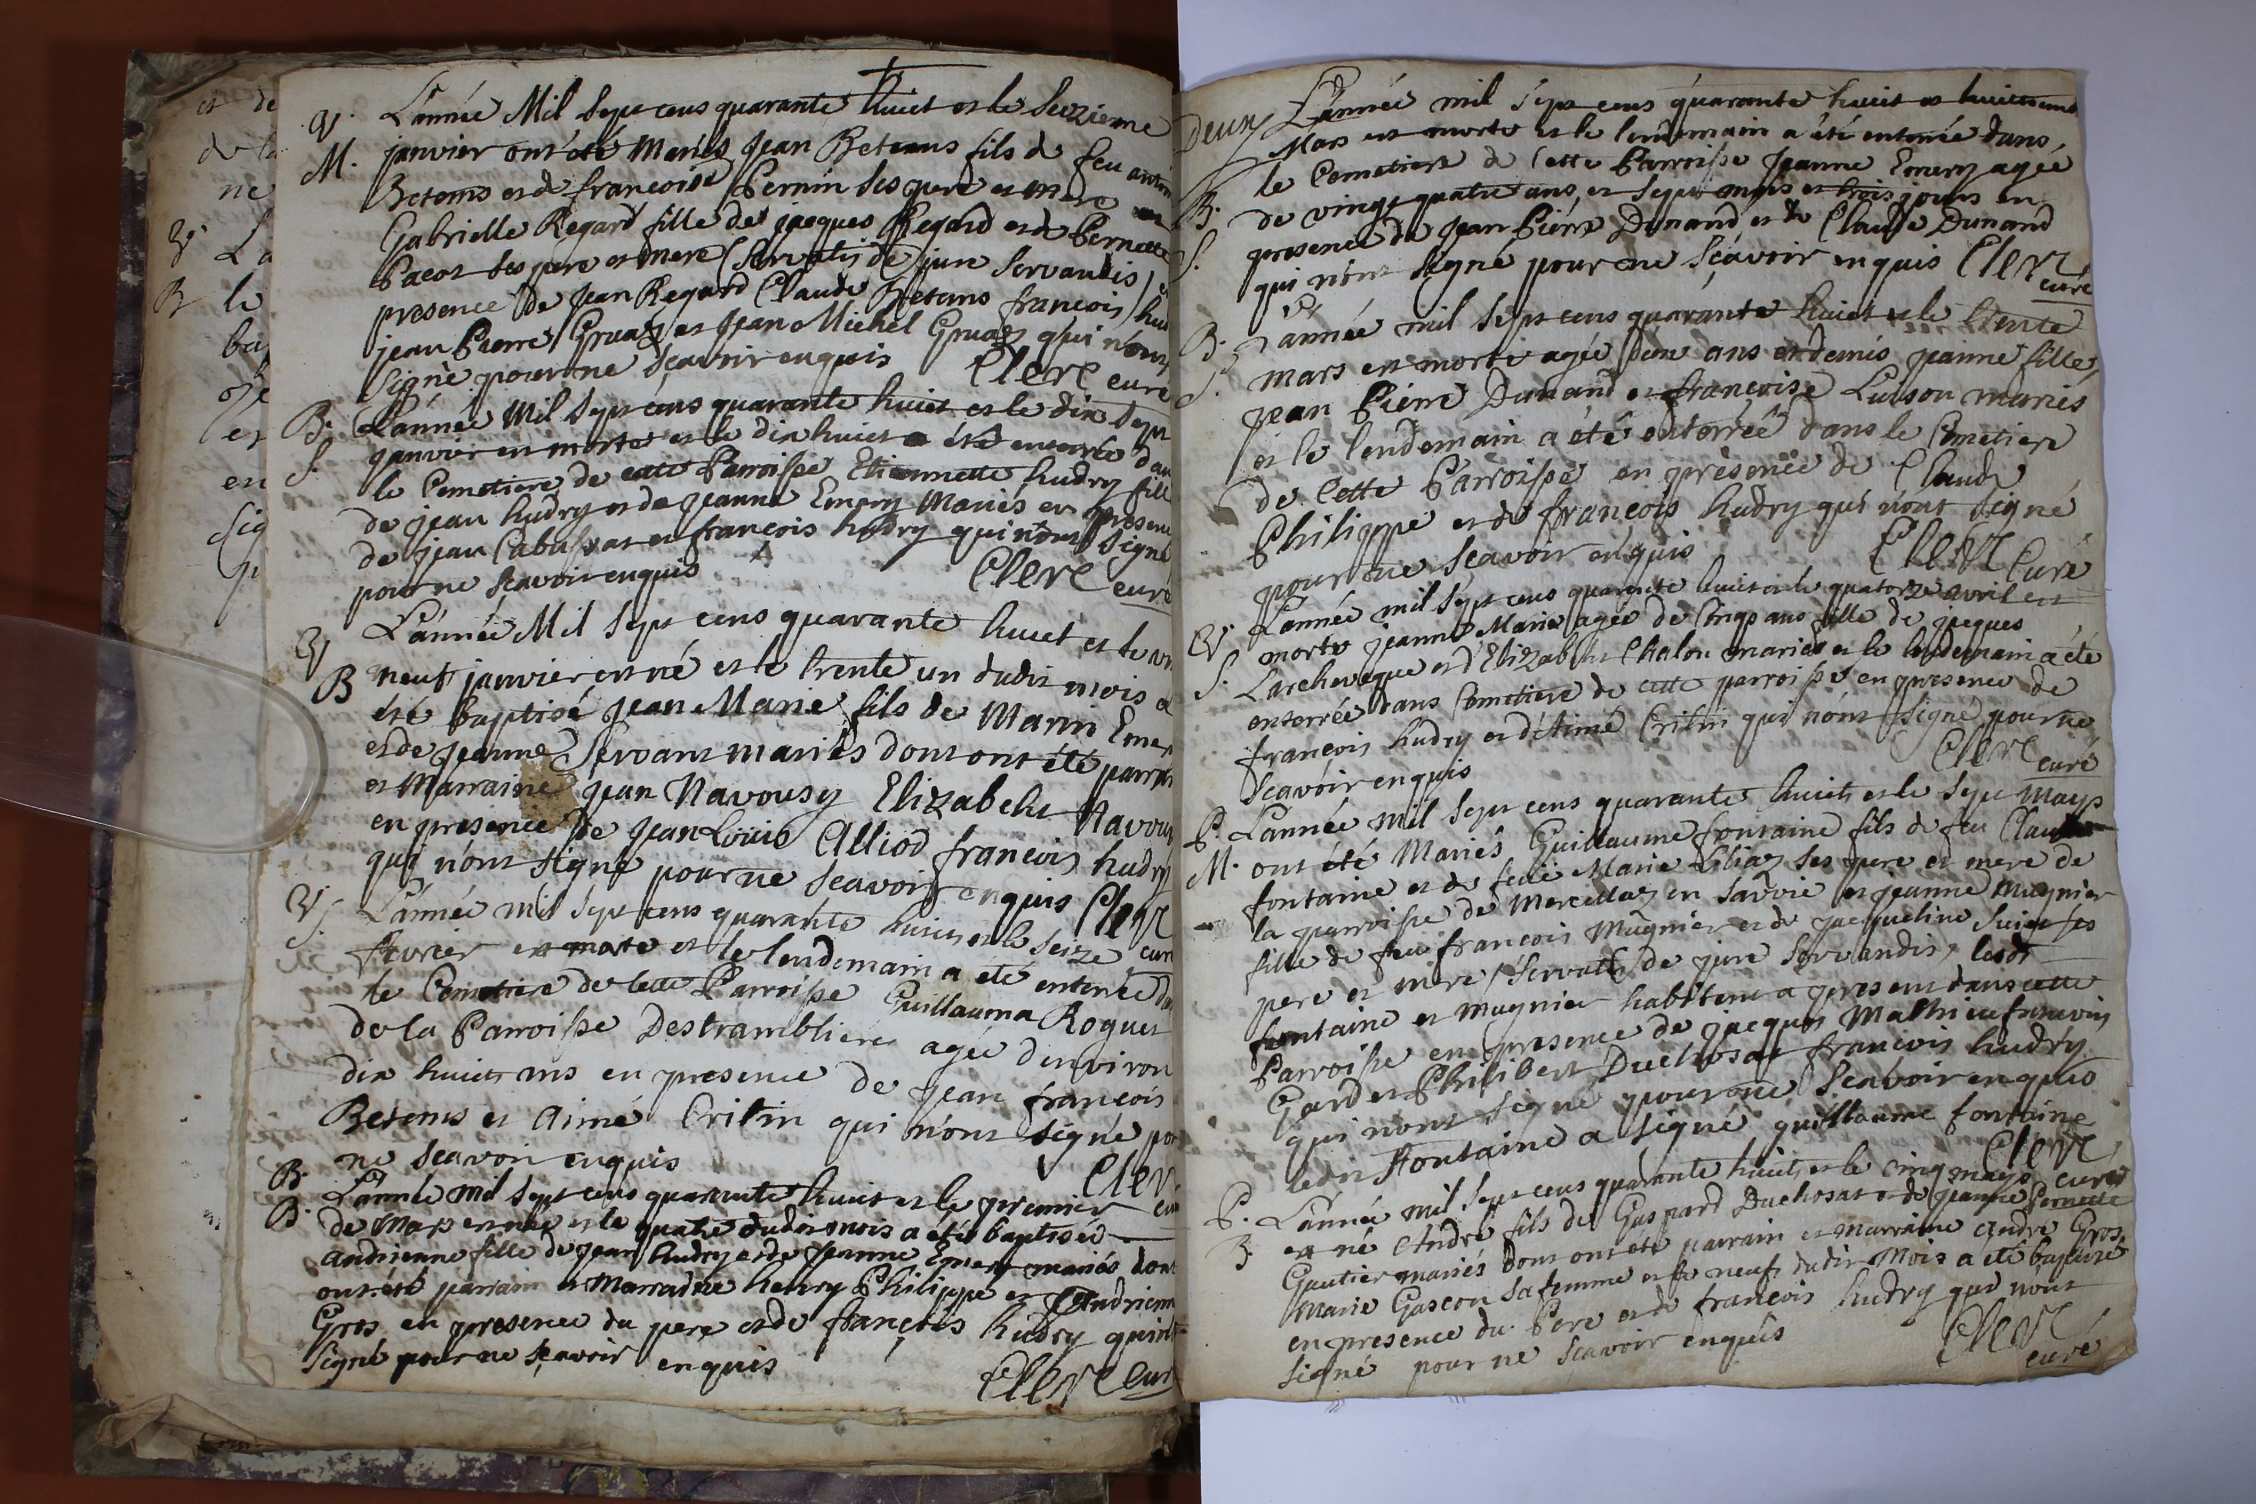 V. L'année Mil Sept cens quarante huict et le Seizieme
M. janvier ont été Mariés Jean Betems fils de feu
Betems et de françoise Pernin ses pere et mere
Gabrielle Regard fille de jacques Regard et de Pernette
Pacot ses pere et mere (Servatis de jure Servandis)
presence de Jean Regard Claude Betems francois
jean Pierre Gruaz et Jean Michel Gruaz qui n'ont
signè pour ne sçavoir enquis Clerc curé
B. L'année Mil Sept cens quarante huict et le dix Sept
S. janvier est morte et le dix huict a été enterrée dan
le Cemetiere de cette Parroisse Etiennette hudry fille
de jean hudry et de jeanne Emery Mariés en presence
de jean et francois hudry qui n'ont signé
pour ne scavoir enquis Clerc curé
V L'année Mil Sept cens quarante huict et le vin
B neuf janvier est né et le trente un dudit mois a
été baptisé jean Marie fils de Marin Emer
et de jeanne Servant mariés dont ont été parrain
et Marraine jean Navousy Elizabeht Navous
en presence de jean Louis Alliod francois hudry
qui n'ont signé pour ne scavoir enquis Clerc
V L'année mil Sept cens quarante huict et le seize cur
S. fevrier est morte et le lendemain a été enterrée da
le Cemetiere de cette Parroisse Guillauma Roquet
de la Parroisse Destramblieres agée d'environ
dix huict ans en presence de jean françois
Betems et Aimé Critin qui n'ont signé po
ne scavoir enquis Cler
B. L'année mil Sept cens quarante huict et le premier cur
B. de Mars est née et le quatre dudit mois a été baptisée
Andrienne fille de jean hudry et de jeanne Emery mariés dont
ont été parrain et Marraine henry Philippe et Andrienne
Gros en presence du pere et de françois hudry qui n'ont
signé pour ne sçavoir enquis Clerc cur
Deux L'année mil Sept cens quarante huict et
Mars est morte et le lendemain a été enterrée dans
B. le Cemetiere de Cette Parroisse Jeanne Emery agée
S. de vingt quatre ans et sept mois et trois jours en
presence de Jean Piérre Dunand et de Claude Dunand
qui n'ont signé pour ne sçavoir enquis Clerc
curé
B. L'année mil Sept cens quarante huict et le trente
S. mars est morte agée ans et demis jeanne fille
jean Piérre Dunand et françoise mariés
et le lendemain a été enterrée dans le Cemetiere
de Cette Parroisse en presence de Claude
Philippe et de françois hudry qui n'ont signé
pour ne scavoir enquis Clerc Curé
V. L'année mil Sept cens quarente huict et le quatorze avril est
S. morte jeanne Marie agée de Cinqs ans fille de jacques
Larcheveque et d'Elizabeht Chalon mariés et le lendemain a été
enterrée dans Cemetiere de cette parroisse en presence de
françois hudry et d'Aimé Critin qui n'ont signé pour ne
scavoir enquis Clerc curé
P. L'année mil Sept cens quarante huict et le Sept Mays
M. ont été Mariés Guillaume fontaine fils de feu Claude
fontaine et de feüe Marie ses pere et mere de
la parroisse de Marcellaz en Savoie et jeanne Mugnier
fille de feu françois Mugnier et de jacqueline ses
pere et mere (Servatis de jure Servandis) lesdt
fontaine et mugnier habitent a present dans cette
Parroisse en presence de jacques Mathieu francois
Gard et Philibert Duchosat francois hudry
qui n'ont signé pour ne Scavoir enquis
ledit fontaine a signé guillaume fontaine
Clerc
P. L'année mil Sept cens quarante huict et le cinq mays curé
B. est né André fils de Gaspard Duchosat et de jeanne Pernette
Gautier mariés dont ont été parrain et marraine Andre Gros
Marie Gascon sa femme et le neuf dudit Mois a été baptizé
en presence du Pere et de francois hudry qui n'ont
signé pour ne scavoir enquis Clerc
curé